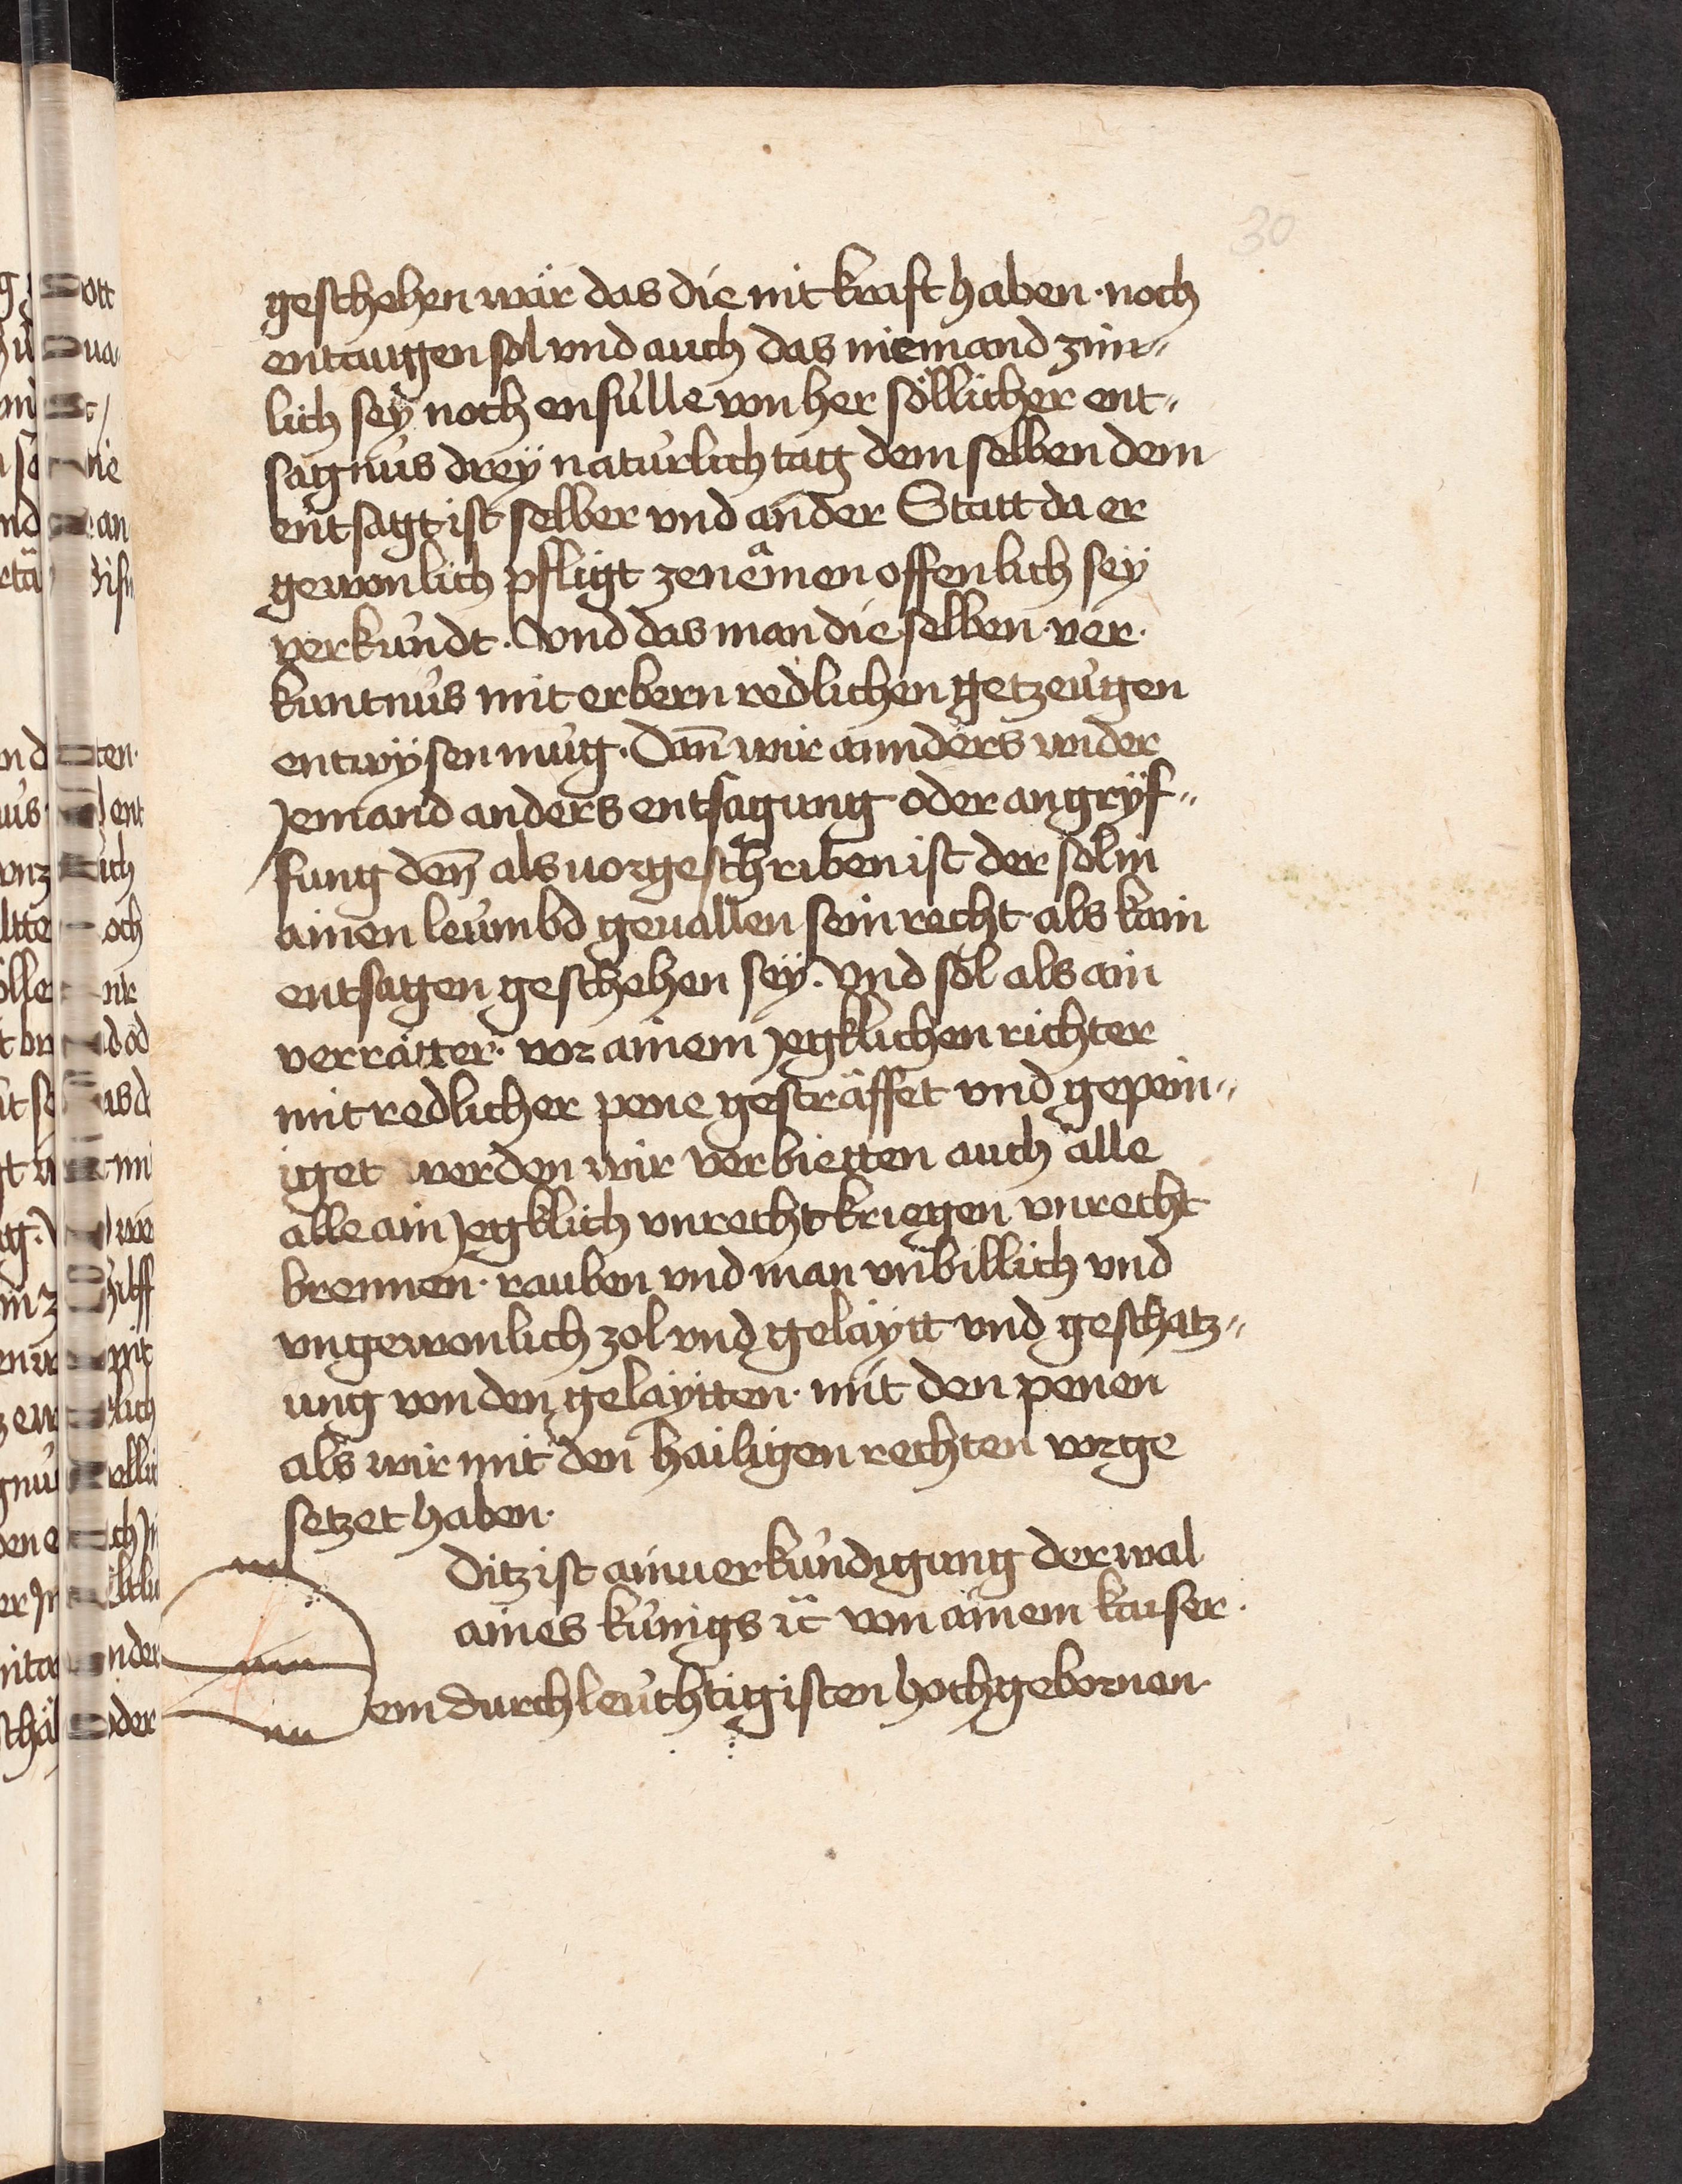 30
geschehen wär das die nit kraft haben · noch
entaugen sol vnd auch das niemand zim〃
lich seÿ noch ensülle von her söllicher ent〃
sagnus dreÿ naturlich tag dem selben dem
entsagt ist selber vnd an der Statt da er
gewonlich pfligt zenemen offenlich seÿ
verkündt · Vnd das man die selben ver·
kuntnus mit erbern redlichen getzeugen
entwÿsen mug · Dan̄ wir annders vnder
Jemand anders entsagung oder angrÿf〃
fung den̄ als uorgeschriben ist der sol in
ainen leumbd geuallen sein recht als kain
entsagen geschehen seÿ · Vnd sol als ain
verrätter · vor ainem Jegklichen richter
mit redlicher pene gesträffet vnd gepein〃
iget werden wir verbietten auch alle
alle ain Jegklich vnrecht kriegen vnrecht
brennen · rauben vnd man vnbillich vnd
vngewonlich zol vnd gelaÿtt vnd geschatz〃
ung von den gelaÿtten · mit den penen
als wir mit den hailigen rechten vorge
setzet haben ·
Ditz ist ain uerkündigung der wal
aines künigs ꝛc̄ von ainem kaiser ·
Dem durchleuchtigisten hochgebornen ·